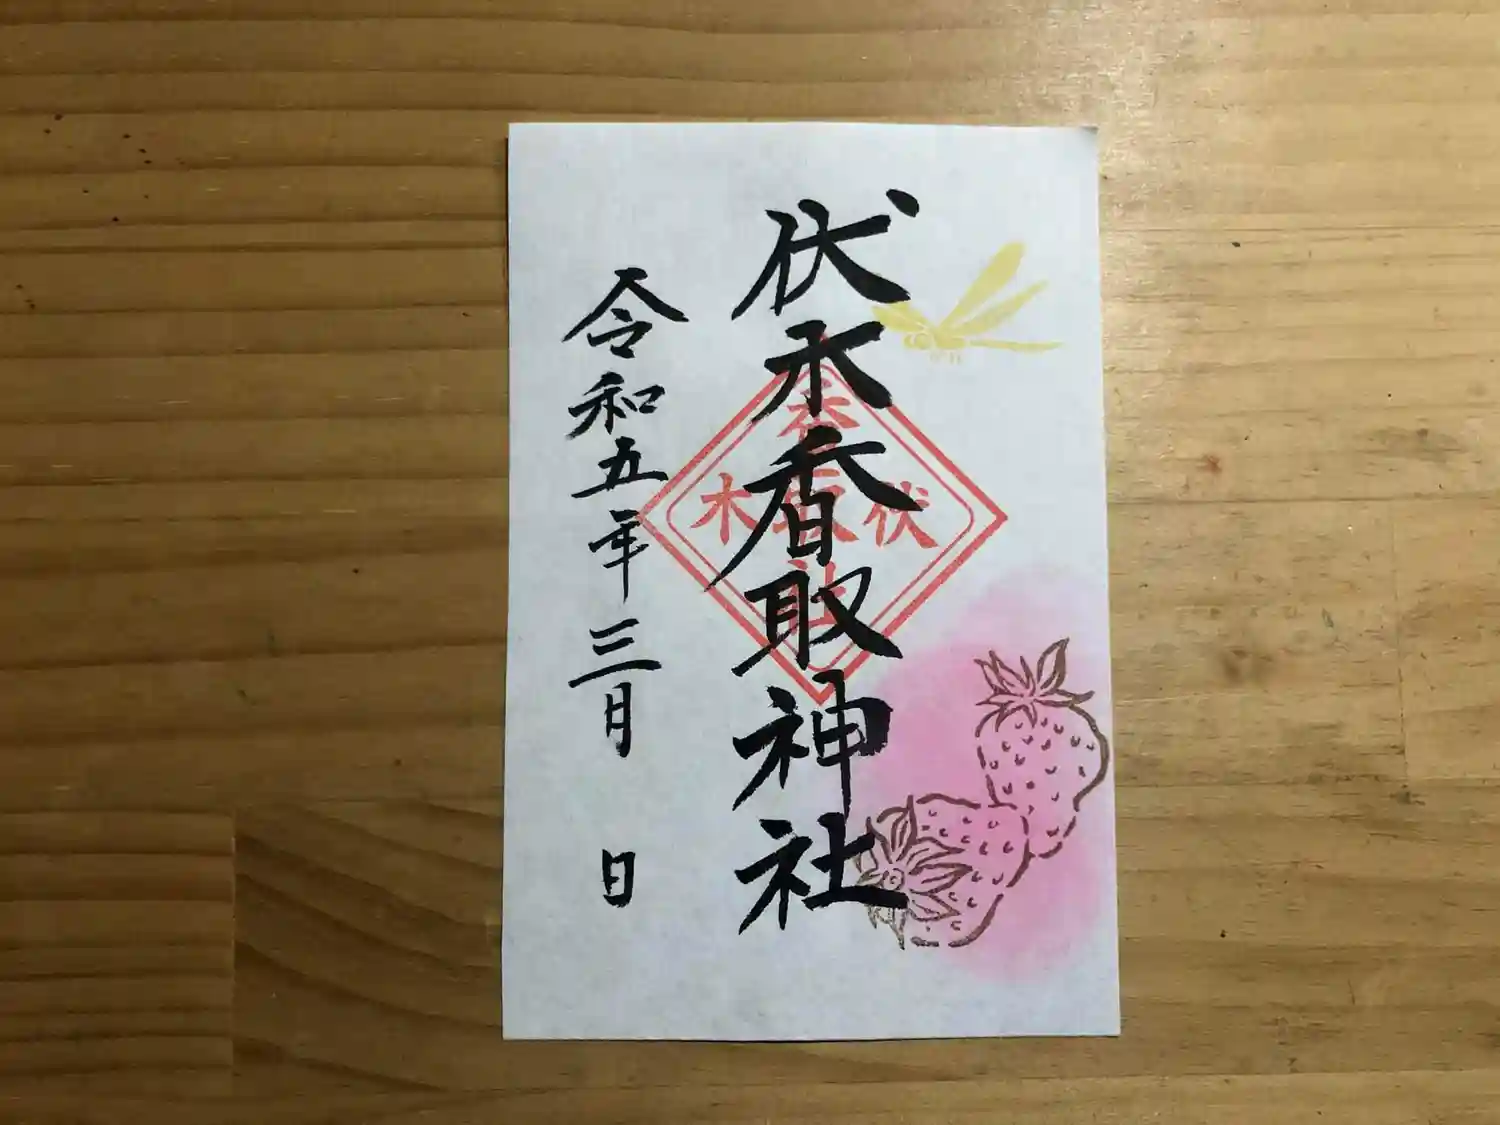 伏木香取神社
令和五年三月 日
香取社
伏
木